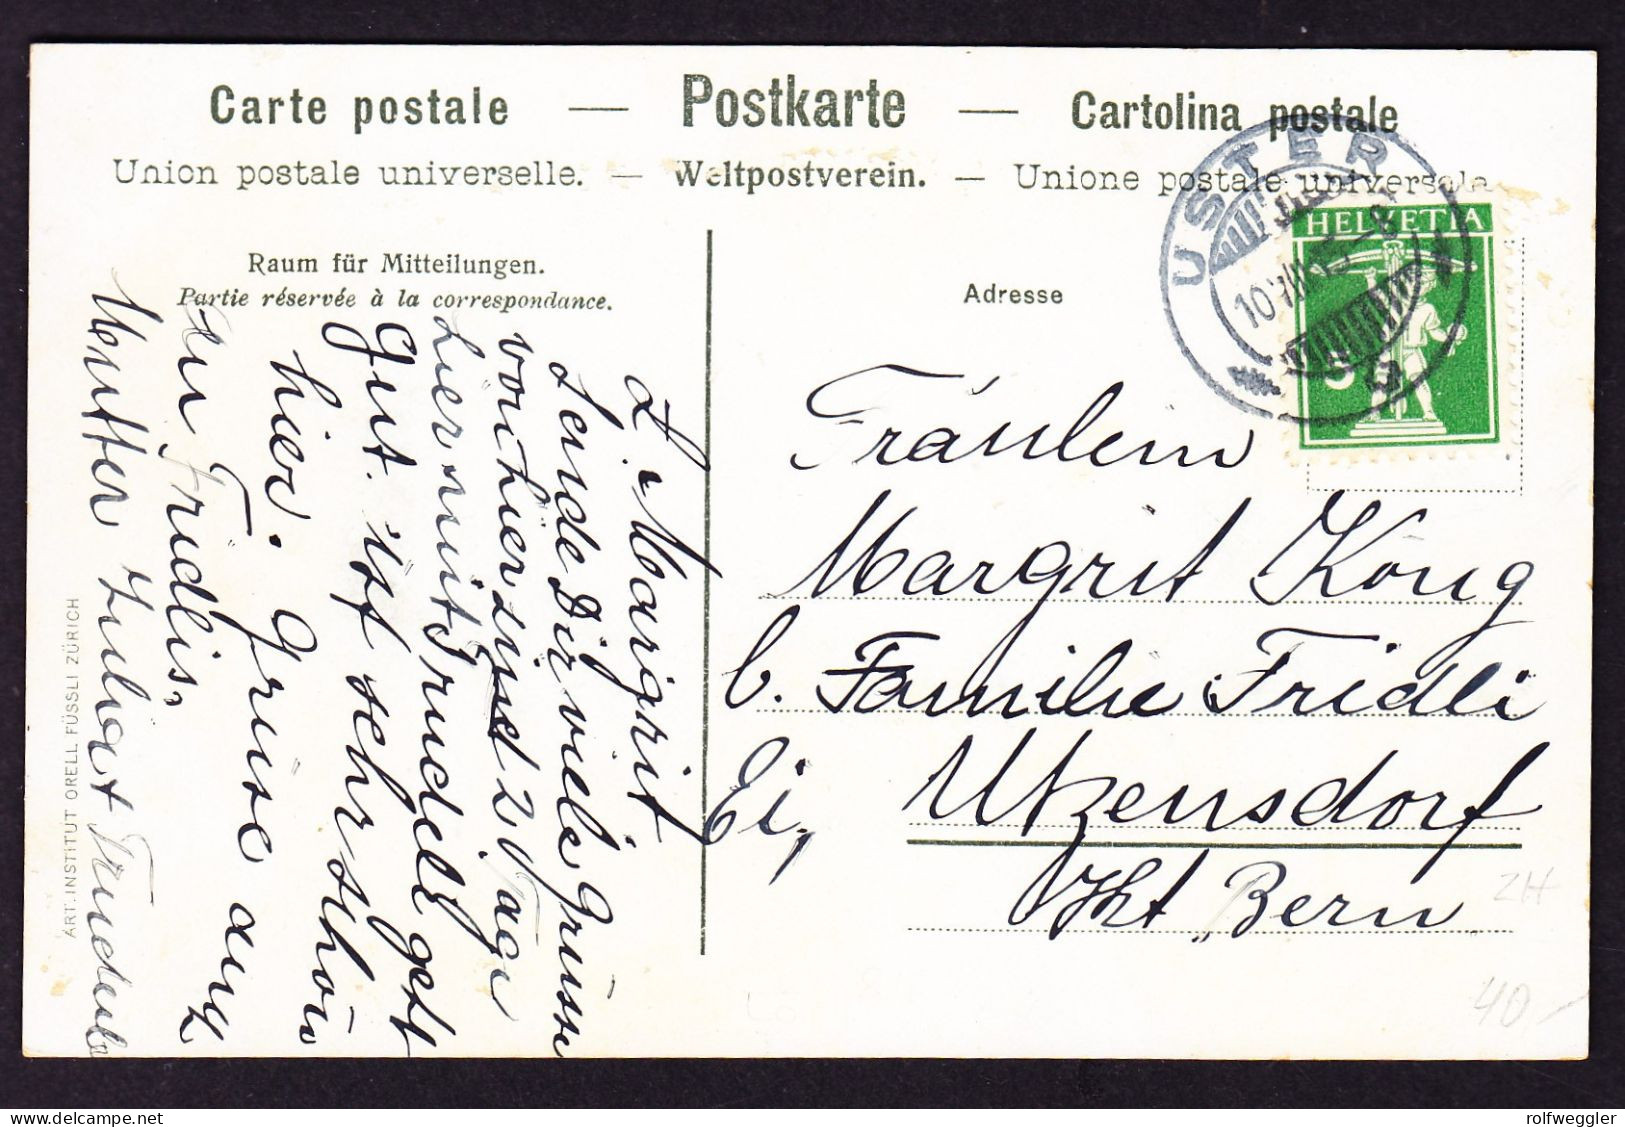 Carte postale — Postkarte — Cartolina postale
Union postale universelle. — Weltpostverein. — Unione postale universale
Raum für Mitteilungen.
Partie réservée à la correspondance.
Adresse
USTER
HELVETIA
L. Margrit
Sende Dir viele Grüsse
von hier sind 2 Tage
hier mit Trudels geht
gut. ist sehr schön
hier. Grüse auch
an Fridlis,
Mutter Trudeli
Fräulein
Margrit König
b. Familie Fridli
Ei, Utzensdorf
Kt. Bern
ZH
40.-
ART. INSTITUT ORELL FÜSSLI ZÜRICH
delcampe.net
rolfweggler